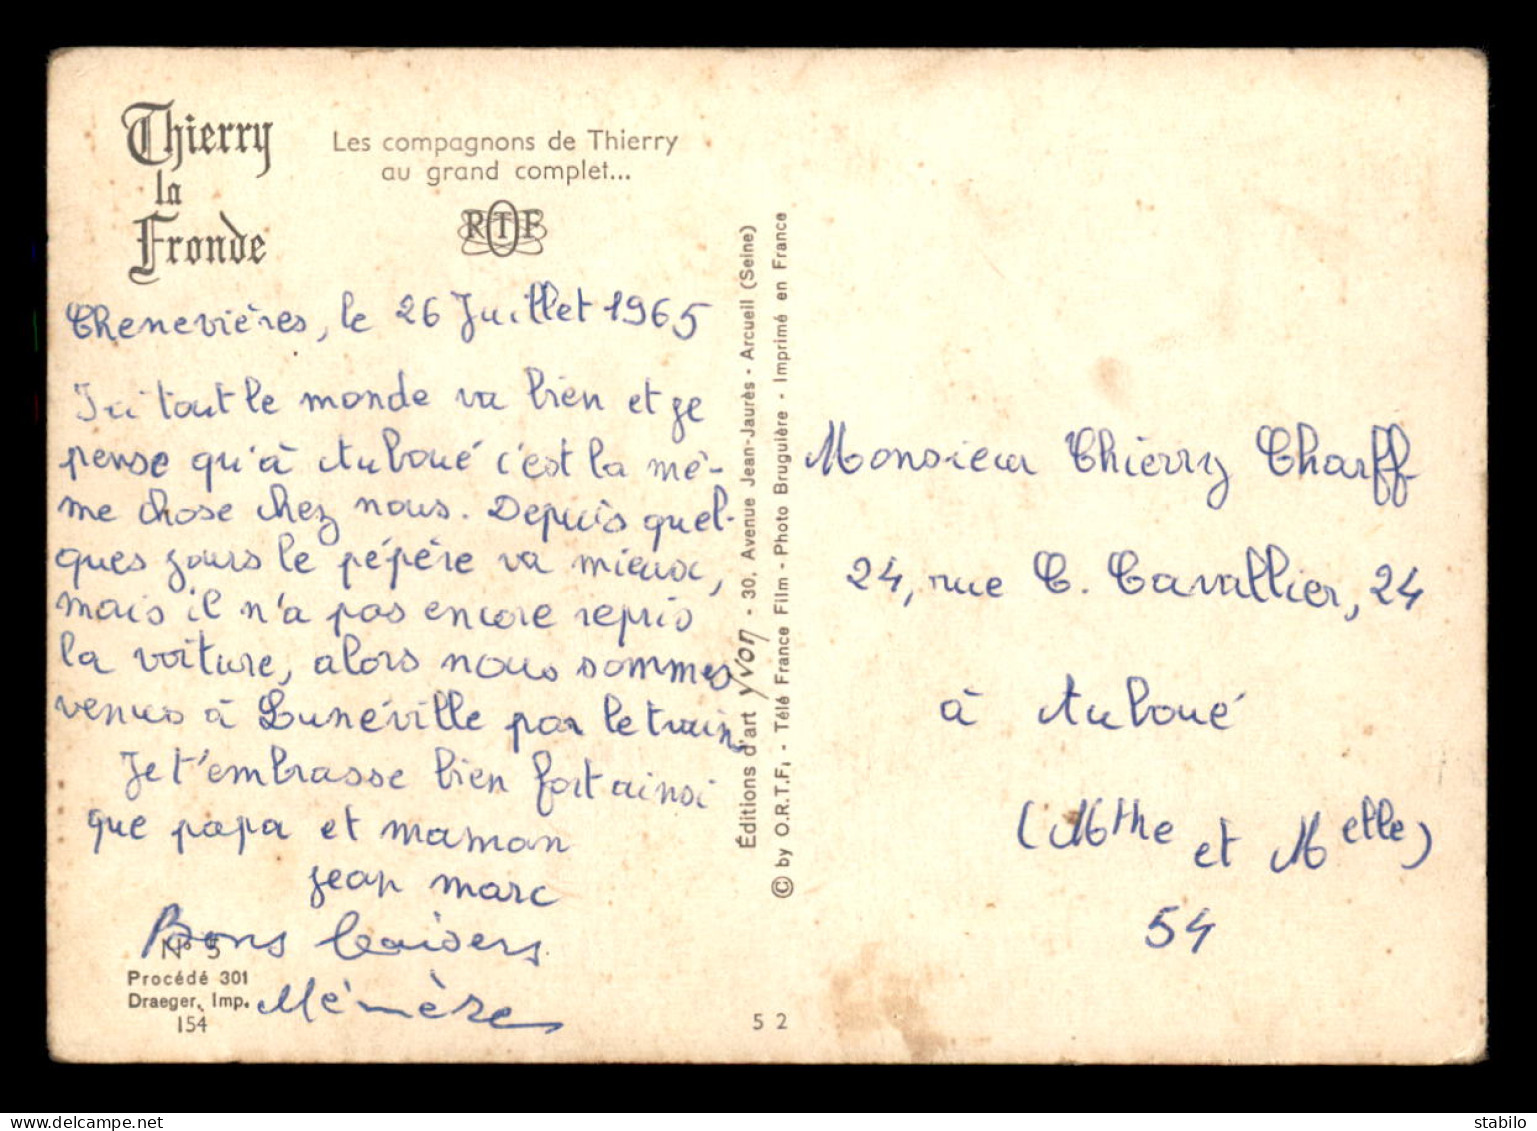 Thierry
la
Fronde
Les compagnons de Thierry
au grand complet...
RTF
Thenevières, le 26 Juillet 1965
Ici tout le monde va bien et je
pense qu'à Auboué c'est la mê-
me chose chez nous. Depuis quel-
ques jours le pépère va mieux,
mais il n'a pas encore repris
la voiture, alors nous sommes
venus à Lunéville par le train.
Je t'embrasse bien fort ainsi
que papa et maman
jean marc
Bons baisers
Mémère
N° 5
Procédé 301
Draeger, Imp.
154
Éditions d'art yvon - 30, Avenue Jean-Jaurès - Arcueil (Seine)
© by O.R.T.F. - Télé France Film - Photo Bruguière - Imprimé en France
52
Monsieur Thierry Charff
24, rue C. Cavallier, 24
à Auboué
(Mthe et Melle)
54
delcampe.net
stabilo